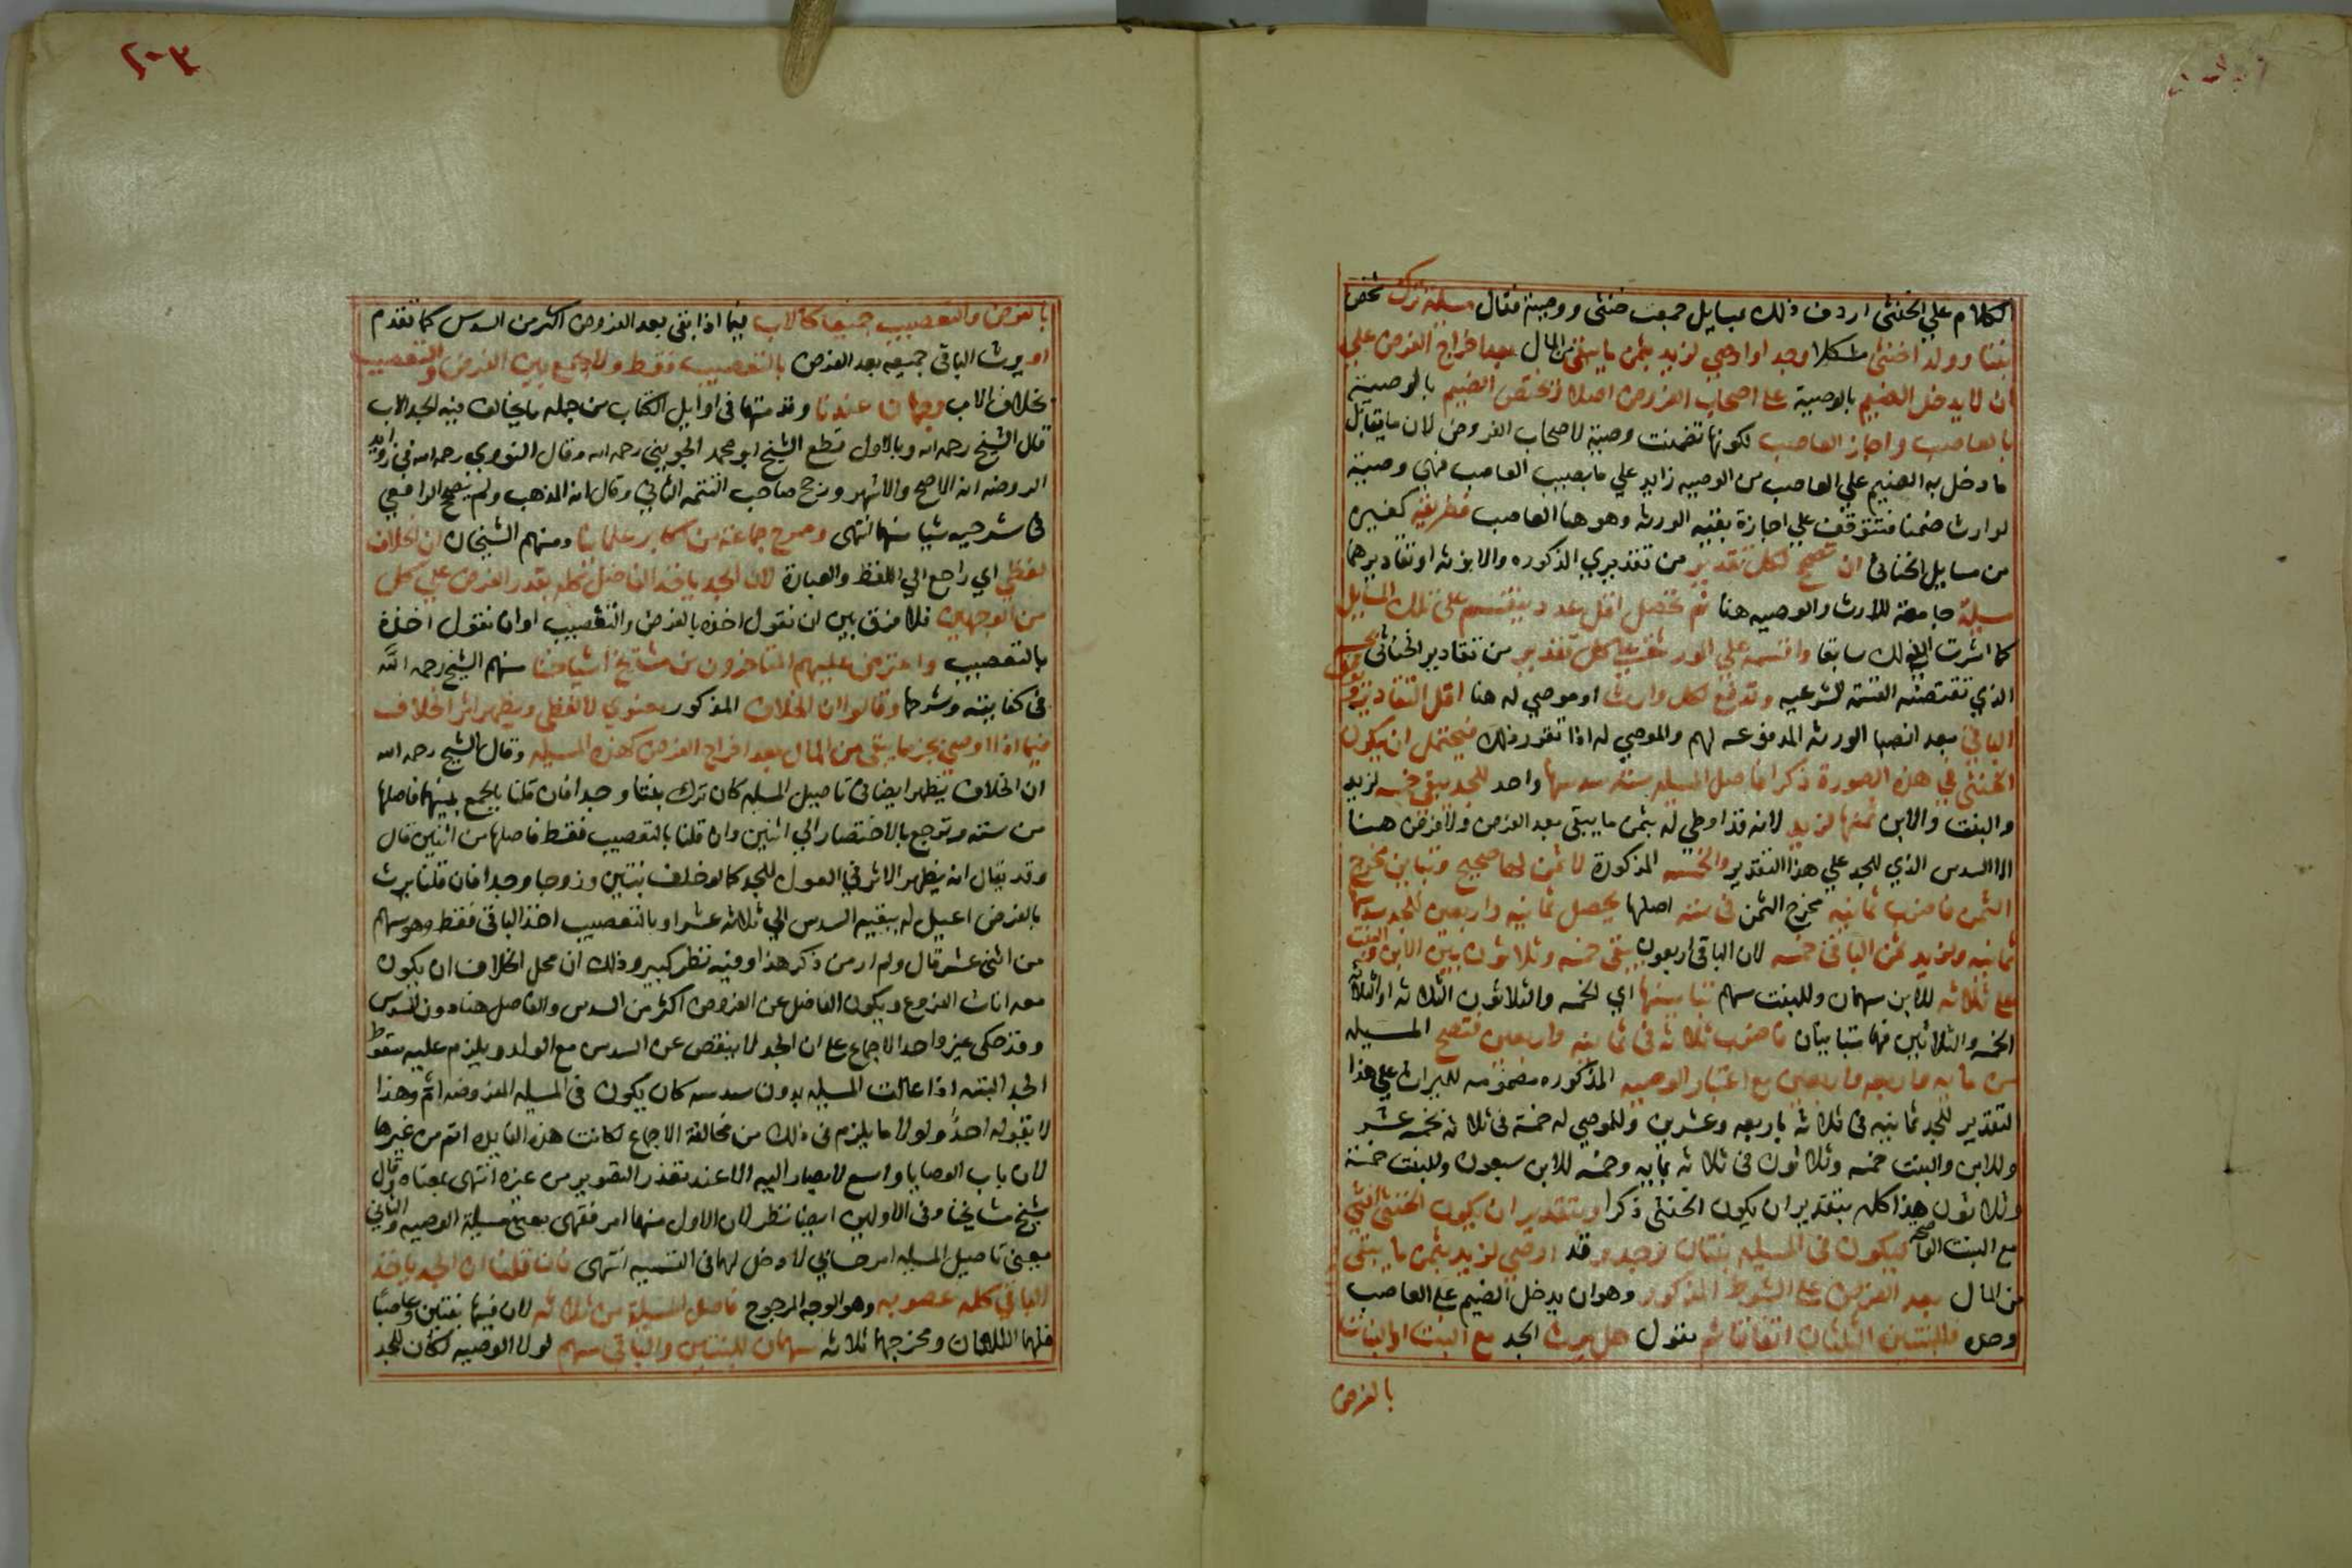 الكلام علي الخنثي اردف ذلك بمسايل جمعت خنثي ووصية فقال مسيلة ترك شخص
بنتا وولدا خنثي مشكلا وجدا واوصي لزيد بثمن ما يبقي من المال بعد اخراج الفرض علي
ان لا يدخل الضيم بالوصية علي اصحاب الفروض اصلا فيختص الضيم بالوصية
بالعاصب واجاز العاصب لكونها تضمنت وصية لاصحاب الفروض لان ما يقابل
ما دخل به الضيم علي العاصب من الوصيه زايد علي ما يصيب العاصب فهي وصية
لوارث ضمنا فتتوقف علي اجازة بقية الورثه وهو هنا العاصب فطريقه كغيره
من مسايل الخناثي ان تصحح لكل تقدير من تقديري الذكوره والانوثه او تقاديرهما
مسيلة جامعة للارث والوصيه هنا ثم تحصل اقل عدد ينقسم علي تلك المسايل
كما اشرت الي ذلك سابقا واقسمه علي الورثة علي كل تقدير من تقادير الخناثي
الذي تقتضيه القسمة الشرعيه وتدفع لكل وارث او موصي له هنا اقل التقادير
الباقي بعد انصبا الورثه المدفوعه لهم والموصي له اذا تقرر ذلك فيحتمل ان يكون
الخنثي في هذه الصورة ذكرا فاصل المسيله سته سدسها واحد للجد يبقي خمسه لزيد
والبنت والابن ثمنها لزيد لانه قد اوصي له بثمن ما يبقي بعد الفرض ولا فرض هنا
الا السدس الذي للجد علي هذا التقدير والخمسه المذكورة لا ثمن لها صحيح وتباين مخرج
الثمن فاضرب ثمانيه مخرج الثمن في سته اصلها يحصل ثمانيه واربعين للجد سدسها
ثمانيه ولزيد ثمن الباقي خمسه لان الباقي اربعون يبقي خمسه وثلاثون بين الابن والبنت
علي ثلاثه للابن سهمان وللبنت سهم تباينها اي الخمسه والثلاثون الثلاثه او الثلاثه
الخمسه والثلاثين فهما متباينان فاضرب ثلاثه في ثمانيه واربعين فتصح المسيله
من مايه واربعه واربعين مع اعتبار الوصيه المذكوره مضمومه للميراث علي هذا
التقدير للجد ثمانيه في ثلاثه باربعه وعشرين وللموصي له خمسة في ثلاثه بخمسه عشر
وللابن والبنت خمسه وثلاثون في ثلاثه بمايه وخمسه للابن سبعون وللبنت خمسة
وثلاثون هذا كله بتقدير ان يكون الخنثي ذكرا وبتقدير ان يكون الخنثي انثي
مع البنت الواضحه فيكون في المسيله بنتان وجد وقد اوصي لزيد بثمن ما يبقي
من المال بعد الفرض علي الشرط المذكور وهو ان يدخل الضيم علي العاصب
وحده فللبنتين الثلثان اتفاقا ثم نقول هل يرث الجد مع البنت او البنات
بالفرض
٢٠٣
بالفرض والتعصيب جميعا كالاب فيما اذا بقي بعد الفروض اكثر من السدس كما تقدم
او يرث الباقي جميعه بعد الفرض بالتعصيب فقط ولا يجمع بين الفرض والتعصيب
بخلاف الاب وجهان عندنا وقدمتهما في اوايل الكتاب من جمله ما يخالف فيه الجد الاب
قال الشيخ رحمه الله وبالاول قطع الشيخ ابو محمد الجويني رحمه الله وقال النووي رحمه الله في زوايد
الروضه انه الاصح والاشهر ورجح صاحب التتمه الثاني وقال انه المذهب ولم يصحح الرافعي
في شرحيه شيا منهما انتهي وصرح جماعة من اكابر علمائنا ومنهم الشيخان ان الخلاف
لفظي اي راجع الي اللفظ والعبارة لان الجد ياخذ الفاضل كله بقدر الفرض علي كل
من الوجهين فلا فرق بين ان نقول اخذه بالفرض والتعصيب او ان نقول اخذه
بالتعصيب واعترض عليهم المتاخرون من مشايخ اشياخنا منهم الشيخ رحمه الله
في كفايته وشرحها وقالوا ان الخلاف المذكور معنوي لا لفظي ويظهر اثر الخلاف
فيما اذا اوصي بجزء مما يبقي من المال بعد اخراج الفرض كهذه المسيله وقال الشيخ رحمه الله
ان الخلاف يظهر ايضا في تاصيل المسيله كان ترك بنتا وجدا فان قلنا بالجمع بينهما فاصلها
من سته وترجع بالاختصار الي اثنين وان قلنا بالتعصيب فقط فاصلها من اثنين قال
وقد يقال انه يظهر الاثر في العول للجد كما لو خلف بنتين وزوجا وجدا فان قلنا يرث
بالفرض اعيل له ببقيه السدس الي ثلاثه عشر او بالتعصيب اخذ الباقي فقط وهو سهم
من اثني عشر قال ولم ار من ذكر هذا وفيه نظر كبير وذلك ان محل الخلاف ان يكون
معه اناث الفروع ويكون الفاضل عن الفروض اكثر من السدس والفاضل هنا دون السدس
وقد حكي غير واحد الاجماع علي ان الجد لا ينقص عن السدس مع الولد ويلزم عليه سقوط
الجد البته اذا عالت المسيله بدون سدسه كان يكون في المسيله المفروضه ام وهذا
لا يقوله احد ولولا ما يلزم في ذلك من مخالفة الاجماع لكانت هذه الفايده اتم من غيرها
لان باب الوصايا واسع لا يصار اليه الا عند تعذر التصوير من غيره انتهي بمعناه وقال
شيخ مشايخنا وفي الاولين ايضا نظر لان الاول منهما امر فقهي يعني مسيلة الوصيه والثاني
يعني تاصيل المسيله امر حسابي لا دخل لهما في التسميه انتهي فان قلنا ان الجد ياخذ
الباقي كله عصوبه وهو الوجه المرجوح فاصل المسيلة من ثلاثه لان فيها بنتين وعاصبا
فلهما الثلثان ومخرجهما ثلاثه سهمان للبنتين والباقي سهم لولا الوصيه لكان للجد